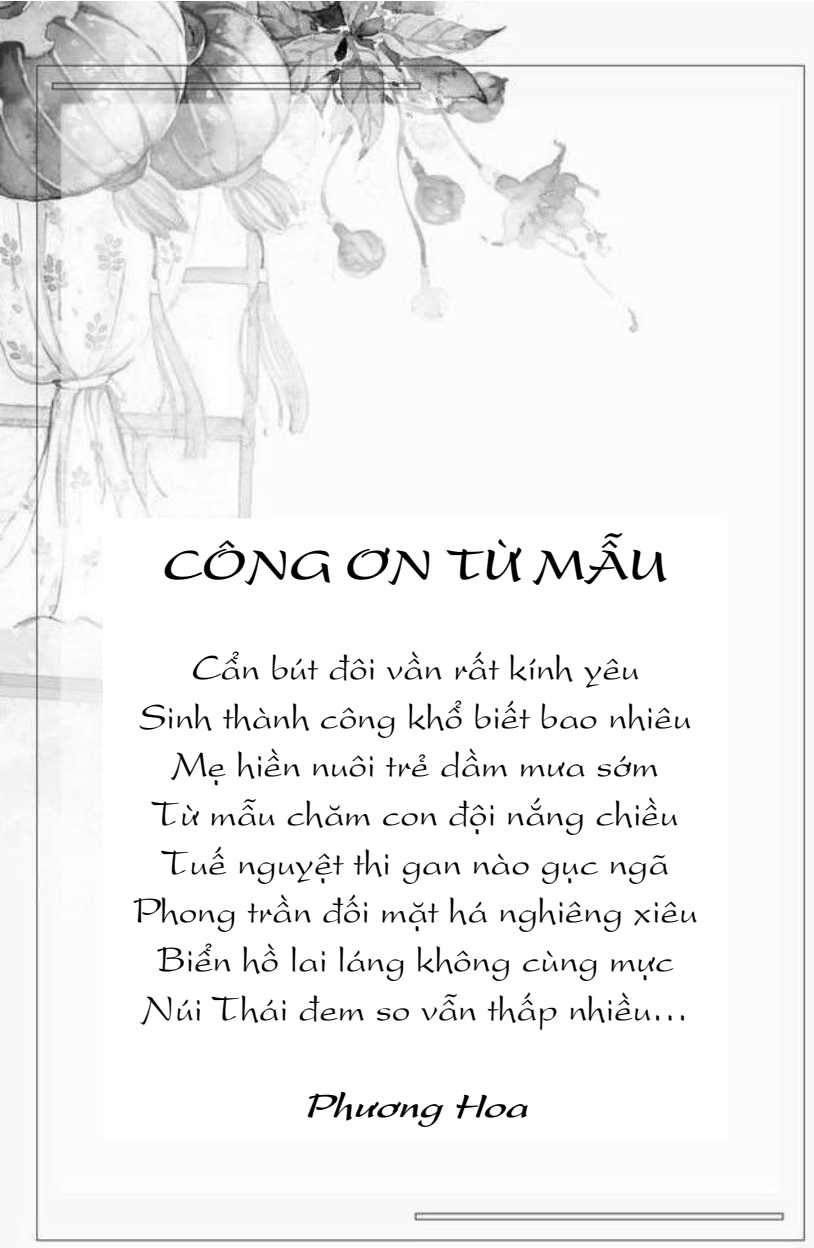 CÔNG ƠN TỪ MẪU
Cẩn bút đôi vần rất kính yêu
Sinh thành công khổ biết bao nhiêu
Mẹ hiền nuôi trẻ dầm mưa sớm
Từ mẫu chăm con đội nắng chiều
Tuế nguyệt thi gan nào gục ngã
Phong trần đối mặt há nghiêng xiêu
Biển hồ lai láng không cùng mực
Núi Thái đem so vẫn thấp nhiều...
Phương Hoa